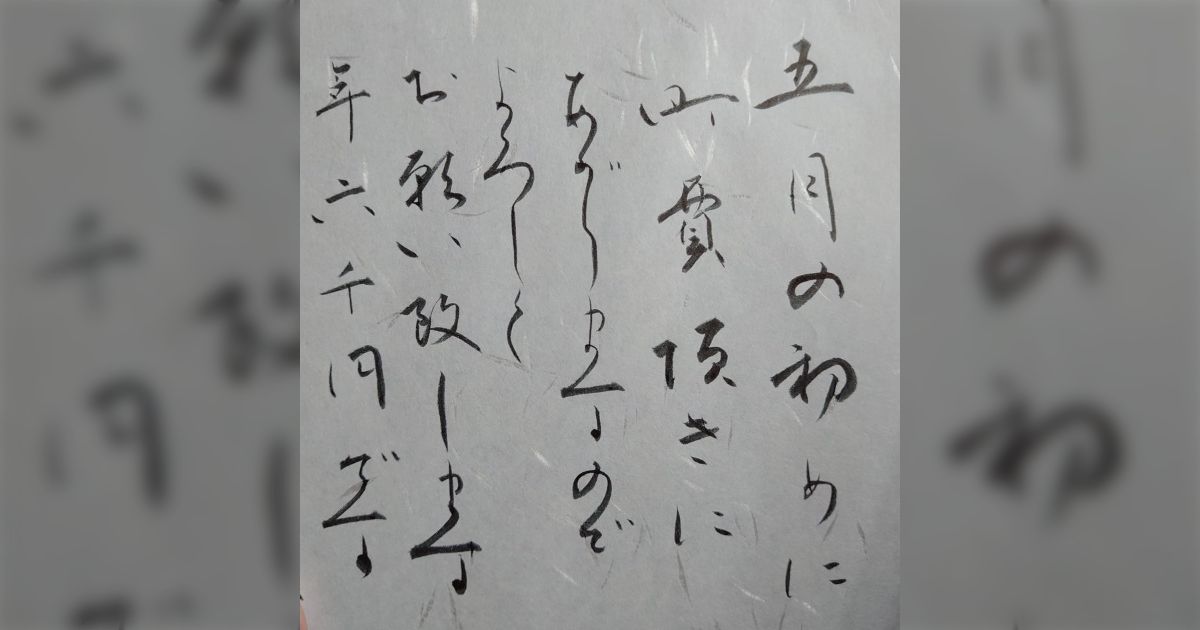 五月の初めに
町費頂きに
あがりますので
よろしく
お願い致します
年六千円です